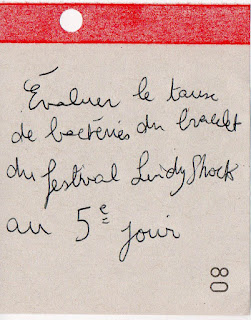 Évaluer le taux
de bactéries du bracelet
du festival LindyShock
au 5e jour
80